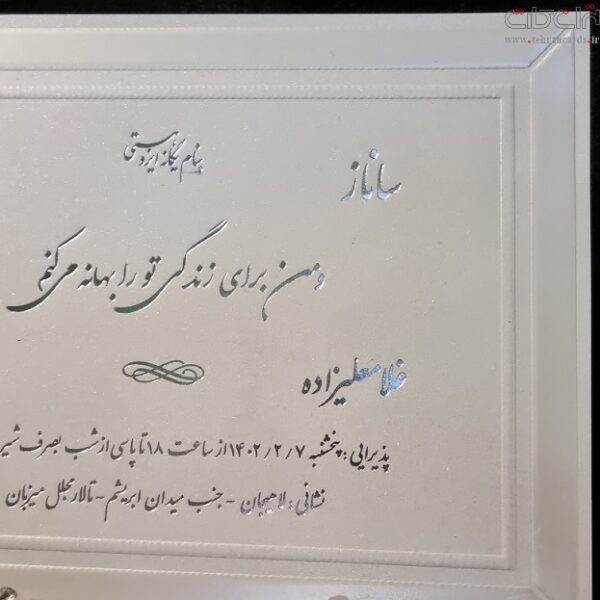 تهران کارت
www.tehrancards.ir
بنام یگانه ایزد هستی
ساناز
و من برای زندگی تو را بهانه می‌کنم
غلامعلیزاده
پذیرایی: پنجشنبه ۱۴۰۲/۲/۷ از ساعت ۱۸ تا پاسی از شب بصرف
نشانی: لاهیجان - جنب میدان ابریشم - تالار مجلل میزبان